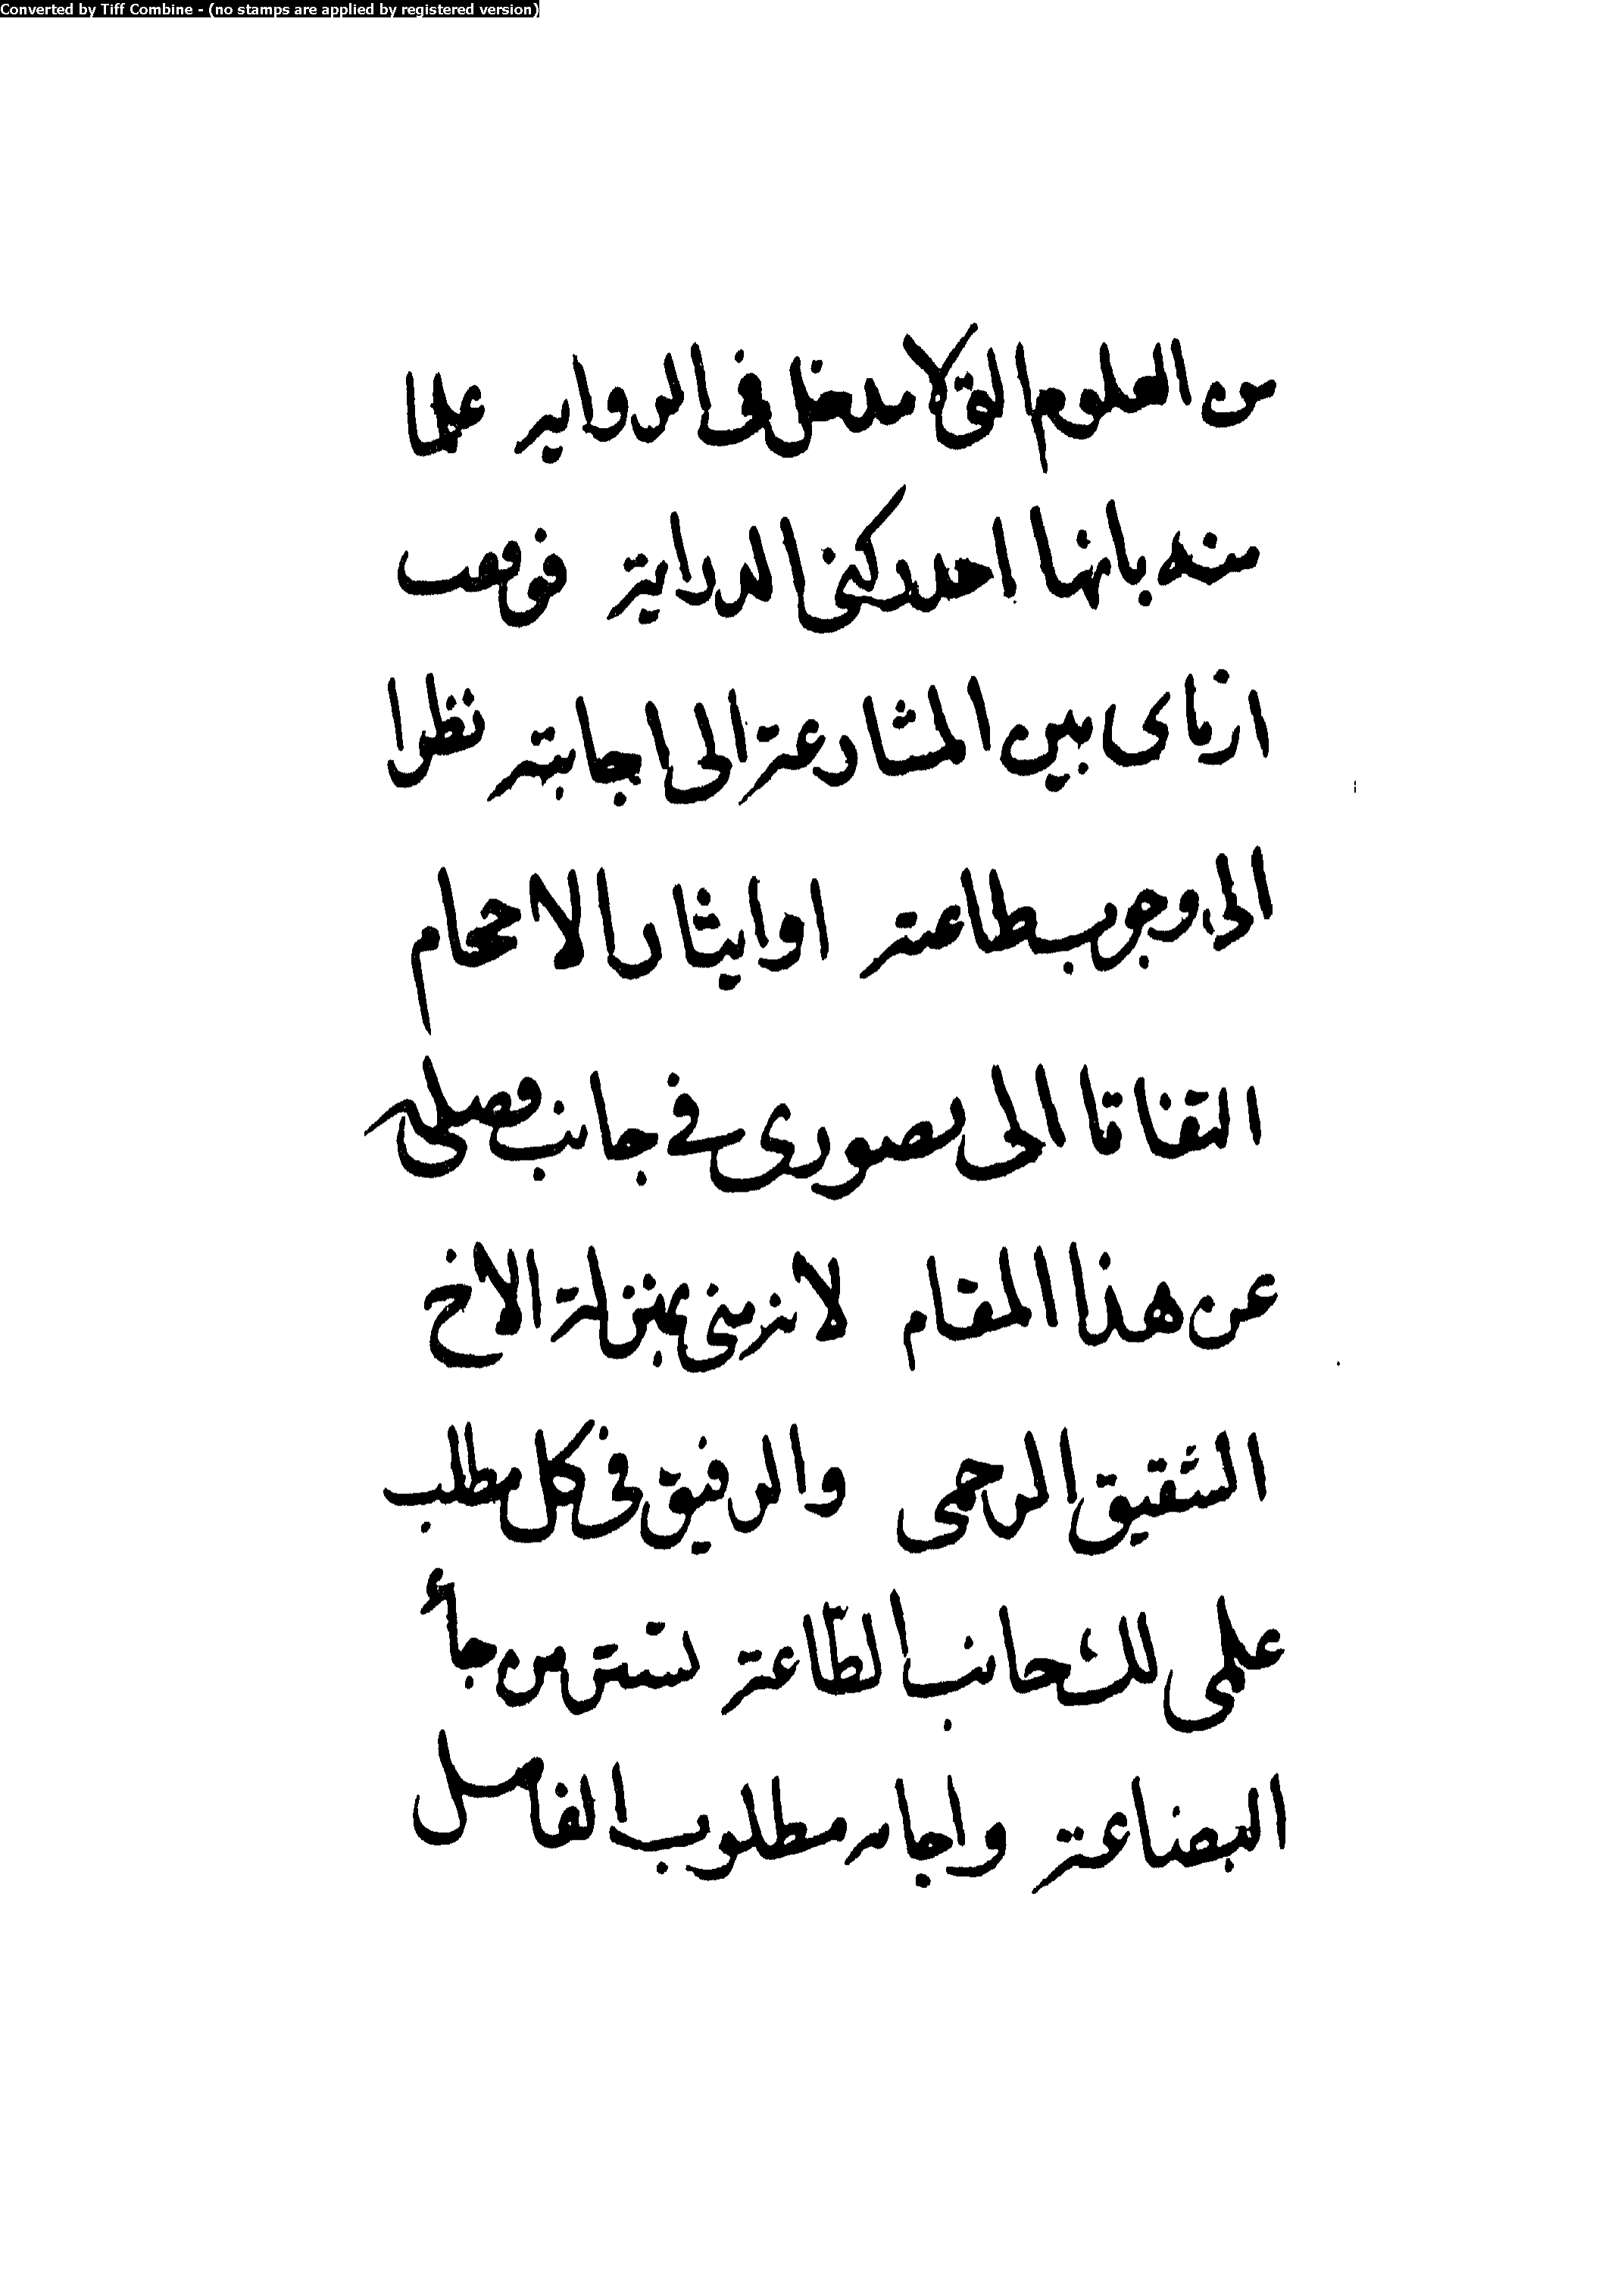 Converted by Tiff Combine - (no stamps are applied by registered version)
من العلوم التي لا مدخل في الرواية علما
منه بانها احد ركني الدراية فوقعت
ارتاى بين المشارعة الى اجابته نظرا
الى وجوب طاعته او ايثار الاحجام
التفاتا الى قصورى في جانب فصلى
عن هذا المقام لانه منى بمنزلة الاخ
الشقيق الرحمى والرفيق في كل مطلب
على لك جانب الطاعة لستتر من جأ
البضاعة واجابه مطلوب الفاصل